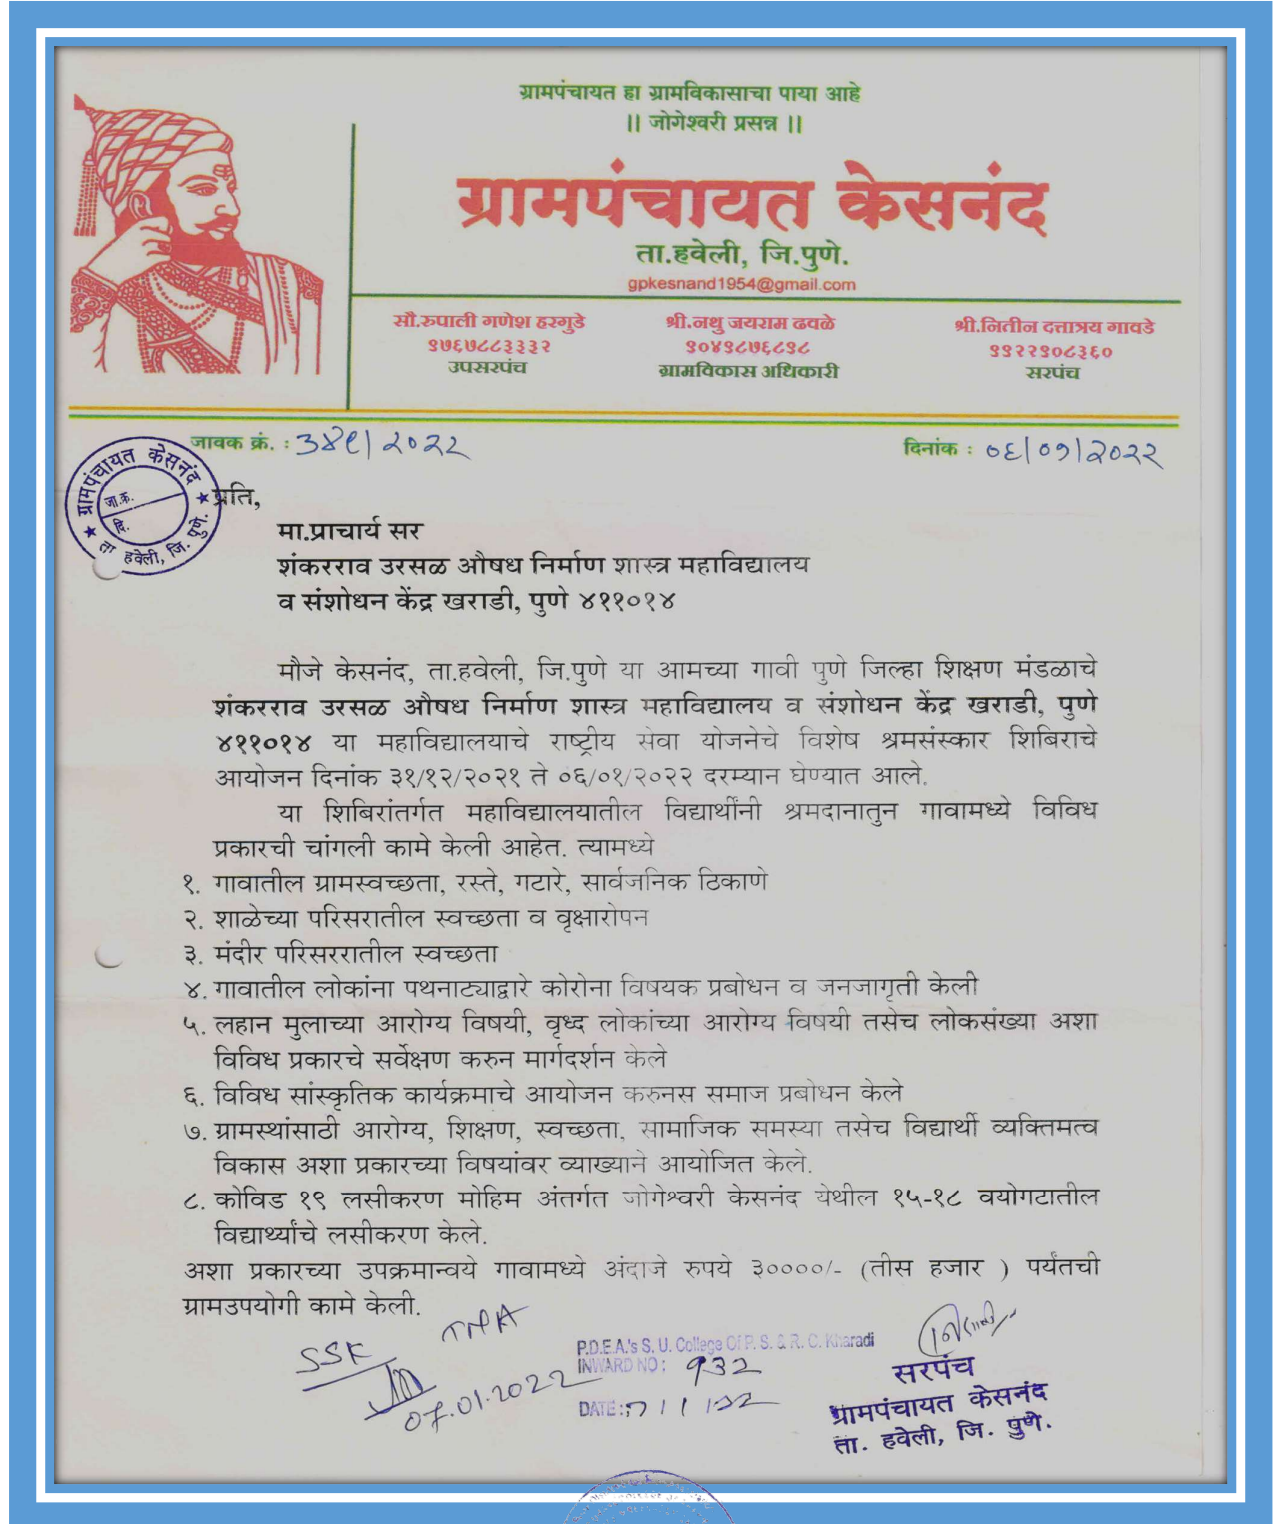 ग्रामपंचायत हा ग्रामविकासाचा पाया आहे
|| जोगेश्वरी प्रसन्न ||
ग्रामपंचायत केसनंद
ता.हवेली, जि.पुणे.
gpkesnand1954@gmail.com
सौ.रुपाली गणेश हरगुडे श्री.नथु जयराम ढवळे श्री.नितीन दत्तात्रय गावडे
९७६७८८३३३२ ९०४९८७६८९८ ९९२२९०८३६०
उपसरपंच ग्रामविकास अधिकारी सरपंच
जावक क्रं. : ३४९/२०२२ दिनांक : ०६/०१/२०२२
ग्रामपंचायत केसनंद
जा.क्र.
दि.
ता हवेली, जि. पुणे.
प्रति,
मा.प्राचार्य सर
शंकरराव उरसळ औषध निर्माण शास्त्र महाविद्यालय
व संशोधन केंद्र खराडी, पुणे ४११०१४
मौजे केसनंद, ता.हवेली, जि.पुणे या आमच्या गावी पुणे जिल्हा शिक्षण मंडळाचे
शंकरराव उरसळ औषध निर्माण शास्त्र महाविद्यालय व संशोधन केंद्र खराडी, पुणे
४११०१४ या महाविद्यालयाचे राष्ट्रीय सेवा योजनेचे विशेष श्रमसंस्कार शिबिराचे
आयोजन दिनांक ३१/१२/२०२१ ते ०६/०१/२०२२ दरम्यान घेण्यात आले.
या शिबिरांतर्गत महाविद्यालयातील विद्यार्थीनी श्रमदानातुन गावामध्ये विविध
प्रकारची चांगली कामे केली आहेत. त्यामध्ये
१. गावातील ग्रामस्वच्छता, रस्ते, गटारे, सार्वजनिक ठिकाणे
२. शाळेच्या परिसरातील स्वच्छता व वृक्षारोपन
३. मंदीर परिसररातील स्वच्छता
४. गावातील लोकांना पथनाट्याद्वारे कोरोना विषयक प्रबोधन व जनजागृती केली
५. लहान मुलाच्या आरोग्य विषयी, वृध्द लोकांच्या आरोग्य विषयी तसेच लोकसंख्या अशा
विविध प्रकारचे सर्वेक्षण करुन मार्गदर्शन केले
६. विविध सांस्कृतिक कार्यक्रमाचे आयोजन करुनस समाज प्रबोधन केले
७. ग्रामस्थांसाठी आरोग्य, शिक्षण, स्वच्छता, सामाजिक समस्या तसेच विद्यार्थी व्यक्तिमत्व
विकास अशा प्रकारच्या विषयांवर व्याख्याने आयोजित केले.
८. कोविड १९ लसीकरण मोहिम अंतर्गत जोगेश्वरी केसनंद येथील १५-१८ वयोगटातील
विद्यार्थ्यांचे लसीकरण केले.
अशा प्रकारच्या उपक्रमान्वये गावामध्ये अंदाजे रुपये ३००००/- (तीस हजार ) पर्यंतची
ग्रामउपयोगी कामे केली.
SSK
07.01.2022
P.D.E.A.'s S. U. College Of P. S. & R. C. Kharadi
INWARD NO : 932
DATE :
सरपंच
ग्रामपंचायत केसनंद
ता. हवेली, जि. पुणे.